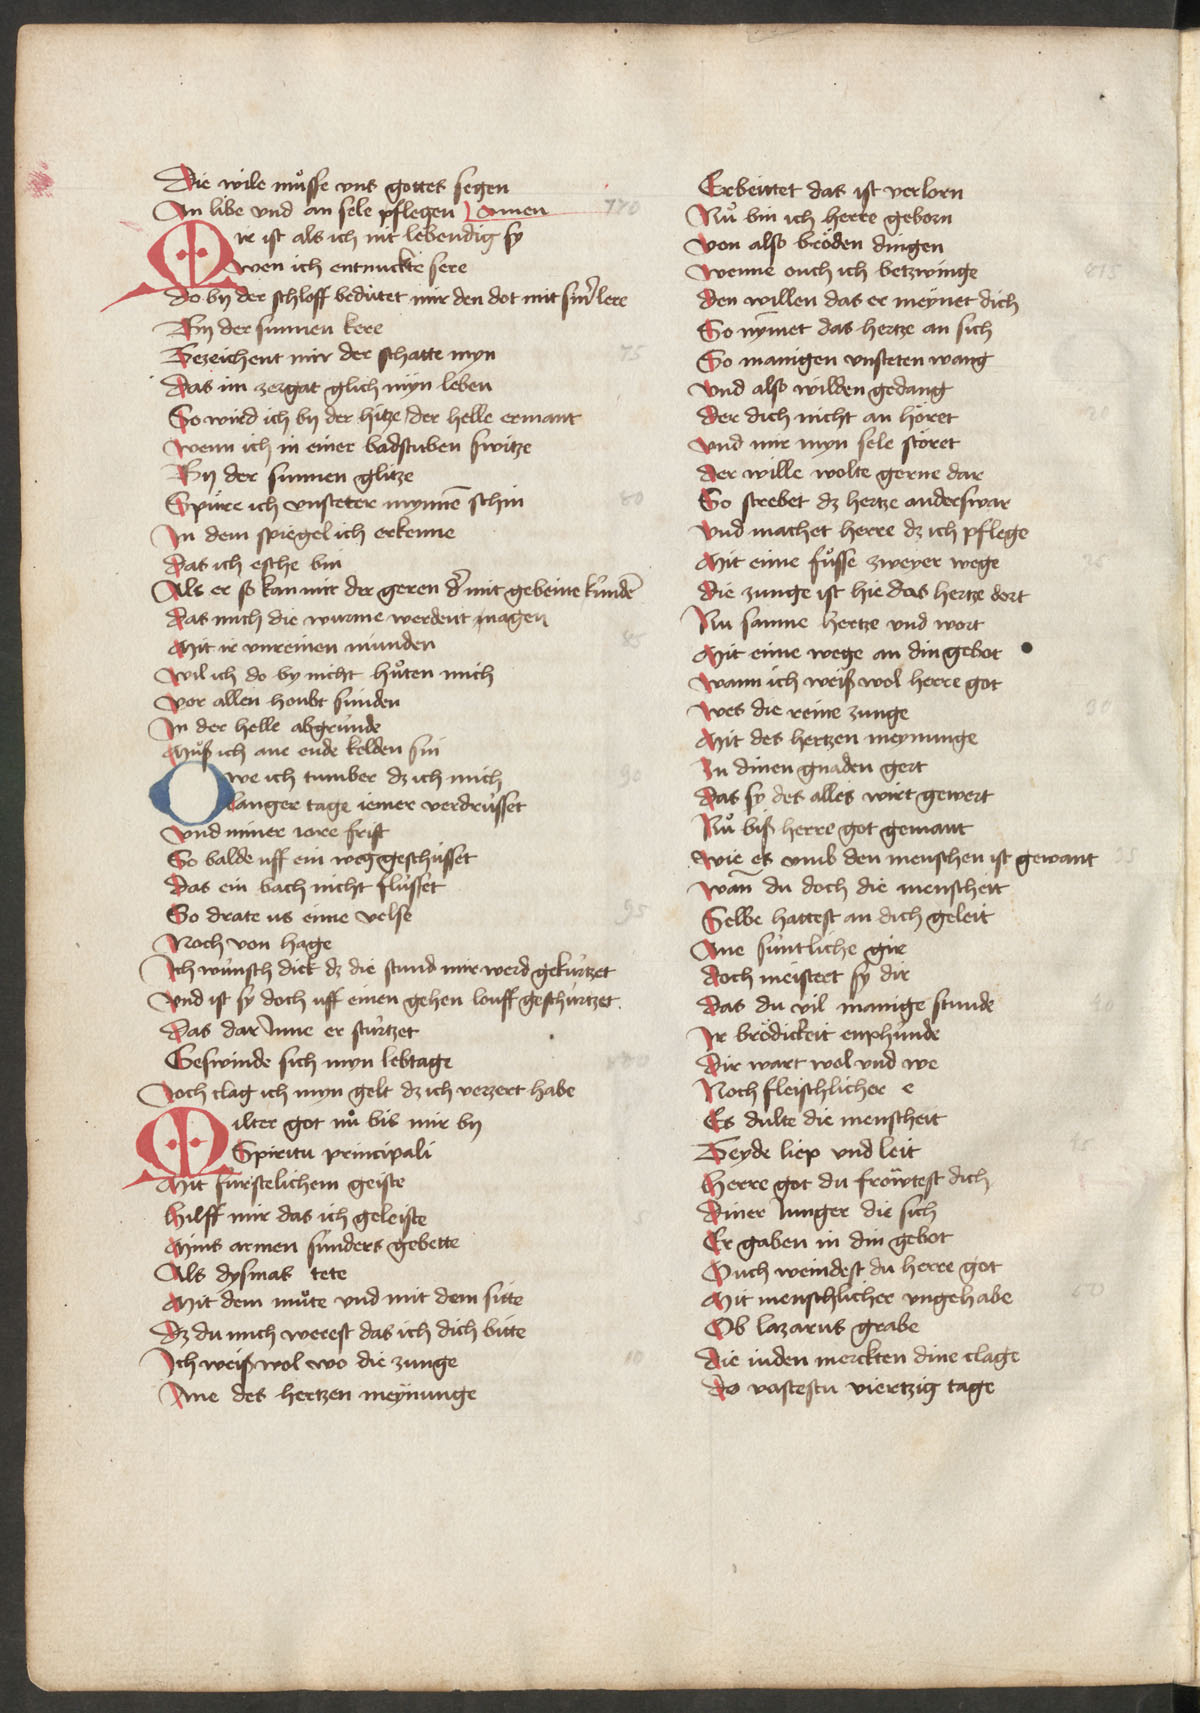 Die wile muͦsse vns gottes segen
An libe vnd an sele pflegen Amen
770
Mir ist als ich nit lebendig sy
Wen ich entnuckte sere
Do by der schloff bedútet mir den dot mit sinr lere
By der sunnen kere
Bezeichent mir der schatte myn
75
Das im zergat glich myn leben
So wird ich by der hitze der helle ermant
Wenn ich in einer badstuben switze
By der sunnen glitze
Spúre ich vnsteter mynnē schin
80
In dem spiegel ich erkenne
Das ich esche bin
Als er so kan mir der geren dʾ mit gebeine kúndē
Das mich die wurme werdent nagen
Mit ir vnreinen munden
85
Wil ich do by nicht huͦten mich
Vor allen houbt sunden
In der helle abgrunde
Muͦß ich ane ende kelden sin
Owe ich tumber dz ich mich
90
Langer tage iemer verdrússet
Vnd miner iore frist
So balde uff ein weg geschússet
Das ein bach nicht flússet
So drate us eime velse
95
Noch von hage
Ich wúnsch dick dz die stund mir werd gekúrtzet
Vnd ist sy doch uff einen gehen louff geschúrtzet
Das dar Inne er stúrtzet
Geswinde sich myn lebtage
800
Joch clag ich myn gelt dz ich verzert habe
Milter got nuͦ bis mir by
Spiritu principali
Mit fúrstelichem geiste
Hilff mir das ich geleiste
5
Mins armen súnders gebette
Als dysmas tete
Mit dem muͦte vnd mit dem sitte
Dz du mich werest das ich dich bitte
Ich weiß wol wo die zunge
10
Ane des hertzen meynunge
Erbeittet das ist verlorn
Nuͦ bin ich herre geborn
Von also bröden dingen
Wenne ouch ich betzwinge
815
Den willen das er meynet dich
So nym̄et das hertze an sich
So manigen vnsteten wang
Vnd also wilden gedang
Der dich nicht an höret
20
Vnd mir myn sele störet
Der wille wolte gerne dar
So strebet dz hertze anderswar
Vnd machet herre dz ich pflege
Mit eime fuͦsse zweyer wege
25
Die zunge ist hie das hertze dort
Nu samne hertze vnd wort
Mit eime wege an din gebot
Wann ich weiß wol herre got
Wes die reine zunge
30
Mit des hertzen meynunge
In dinen gnaden gert
Das sy des alles wirt gewert
Nuͦ biß herre got gemant
Wie es vmb den menschen ist gewant
35
Wan̄ du doch die menscheit
Selbe hattest an dich geleit
Ane súntliche gir
Doch meistert sy dir
Das du vil manige stunde
40
Ir brödickeit enphúnde
Dir wart wol vnd we
Noch fleischlicher e
Es dulte die menscheit
Beyde liep vnd leit
45
Herre got du fröwtest dich
Diner Iunger die sich
Er gaben in din gebot
Ouch weindest du herre got
Mit menschlicher vngehabe
50
Ob lazarus grabe
Die iuden merckten dine clage
Do vastestu viertzig tage